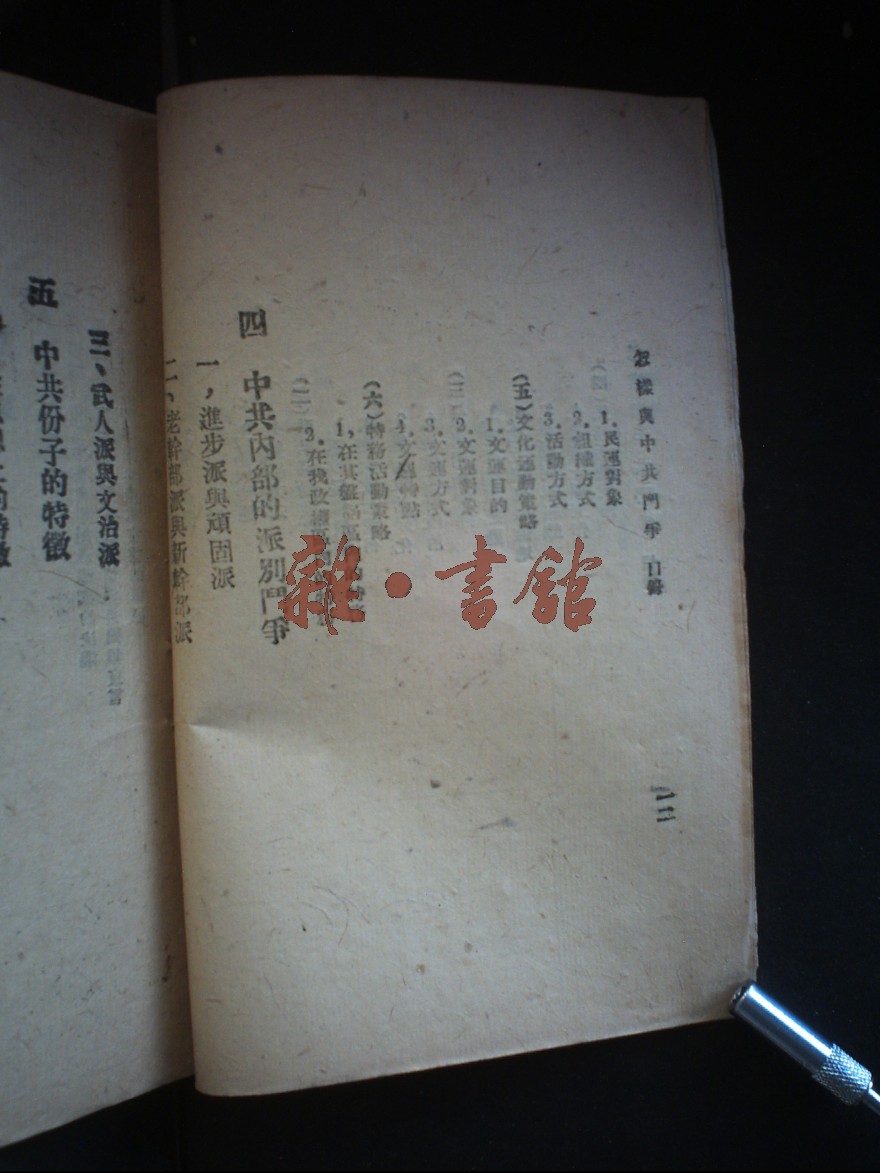 怎樣與中共鬥爭 目錄
二
1.民運對象
2.組織方式
3.活動方式
(五)文化運動策略
1.文運目的
2.文運對象
3.文運方式
4.文運特點
(六)特務活動策略
1,在其盤
2.在我政
四 中共內部的派別鬥爭
一,進步派與頑固派
二、老幹部派與新幹部派
三、武人派與文治派
五 中共份子的特徵
的特徵
雜·書館